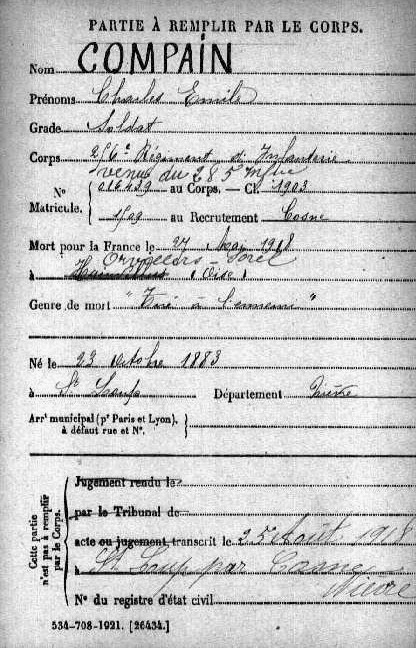 PARTIE À REMPLIR PAR LE CORPS.
Nom COMPAIN
Prénoms Charles Emile
Grade Soldat
Corps 256e Régiment d'Infanterie
venu du 285 Inftie
No Matricule. { 016439 au Corps. — Cl. 1903
1509 au Recrutement Cosne
Mort pour la France le 27 Mai 1918
Orvillers-Sorel
à (Oise)
Genre de mort "Tué à l'ennemi"
Né le 23 octobre 1883
à St Loup Département Nièvre
Arrt municipal (pr Paris et Lyon),
à défaut rue et No.
Cette partie
n'est pas à remplir
par le Corps.
Jugement rendu le
par le Tribunal de
acte ou jugement transcrit le 25 Août 1918
à St Loup par Cosne
Nièvre
No du registre d'état civil
534-708-1921. [26434.]